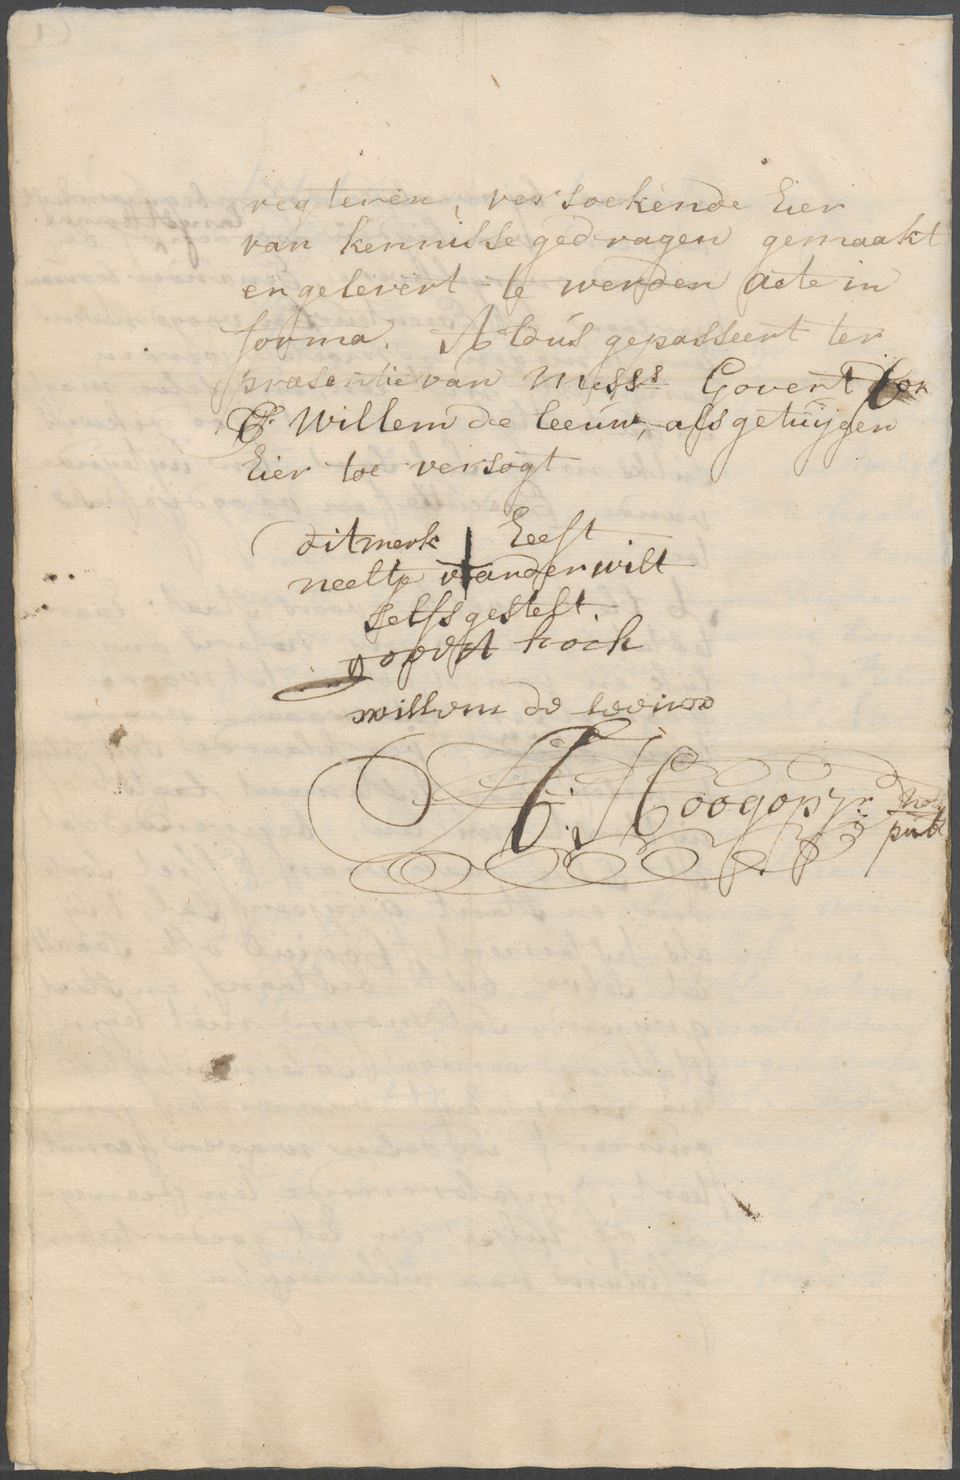 regteren, versoekende hier
van kennisse gedragen gemaakt
en gelevert te werden acte in
forma. Aldus gepasseert ter
præsentie van Mess.rs Govert
& Willem de leeuw, als getuijgen
hier toe versogt
dit merk heeft
neeltje vander wilt
selfs gestelt.
govert hoch
willem de leeuw
A: Hoogop
Not:
publ